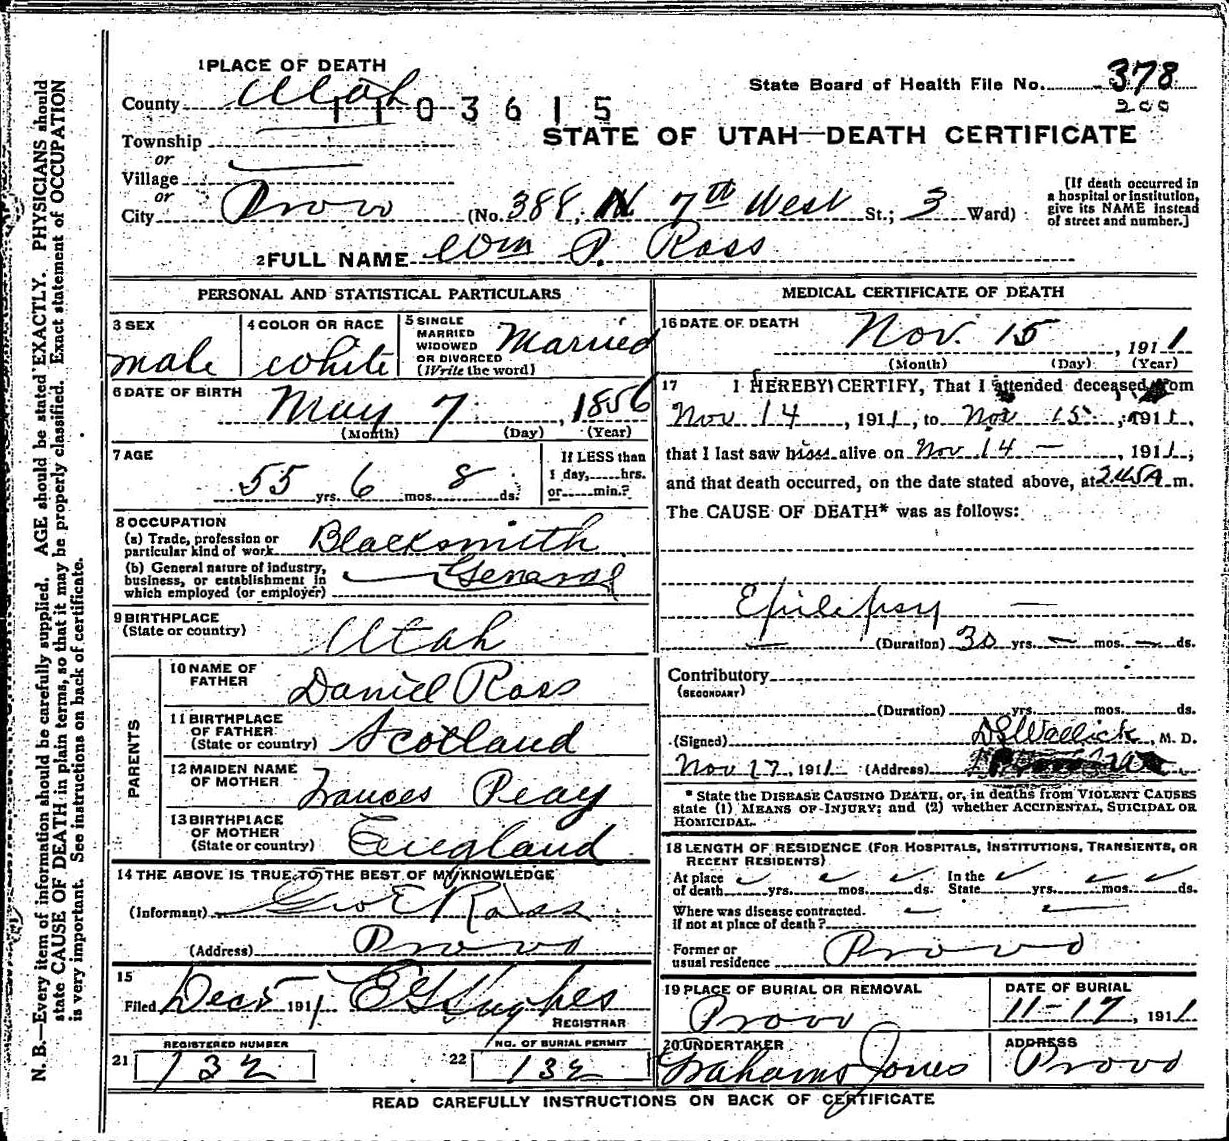 1 PLACE OF DEATH
County Utah
1103615
State Board of Health File No. 378
200
STATE OF UTAH—DEATH CERTIFICATE
Township
or
Village
or
City Provo (No. 388, N. 7th West St.; 3 Ward)
[If death occurred in
a hospital or institution,
give its NAME instead
of street and number.]
2 FULL NAME Wm P. Ross
PERSONAL AND STATISTICAL PARTICULARS
3 SEX
male
4 COLOR OR RACE
white
5 SINGLE
MARRIED
WIDOWED
OR DIVORCED
(Write the word)
Married
6 DATE OF BIRTH
May 7 1856
(Month) (Day) (Year)
7 AGE
55 yrs. 6 mos. 8 ds.
If LESS than
1 day, hrs.
or min.?
8 OCCUPATION
(a) Trade, profession or
particular kind of work Blacksmith
(b) General nature of industry,
business, or establishment in
which employed (or employer) General
9 BIRTHPLACE
(State or country) Utah
PARENTS
10 NAME OF
FATHER Daniel Ross
11 BIRTHPLACE
OF FATHER
(State or country) Scotland
12 MAIDEN NAME
OF MOTHER Frances Peay
13 BIRTHPLACE
OF MOTHER
(State or country) England
14 THE ABOVE IS TRUE TO THE BEST OF MY KNOWLEDGE
(Informant) Geo E Ross
(Address) Provo
15
Filed Dec 5 1911 E G Hughes
REGISTRAR
REGISTERED NUMBER
21 132
NO. OF BURIAL PERMIT
22 132
MEDICAL CERTIFICATE OF DEATH
16 DATE OF DEATH
Nov. 15, 1911
(Month) (Day) (Year)
17 I HEREBY CERTIFY, That I attended deceased from
Nov 14, 1911, to Nov 15, 1911,
that I last saw him alive on Nov 14 —, 1911,
and that death occurred, on the date stated above, at 2.45 A m.
The CAUSE OF DEATH* was as follows:
Epilepsy —
(Duration) 30 yrs. — mos. — ds.
Contributory
(SECONDARY)
(Duration) yrs. mos. ds.
(Signed) D S Wallick, M. D.
Nov 17, 1911 (Address)
* State the DISEASE CAUSING DEATH, or, in deaths from VIOLENT CAUSES
state (1) MEANS OF INJURY; and (2) whether ACCIDENTAL, SUICIDAL OR
HOMICIDAL.
18 LENGTH OF RESIDENCE (FOR HOSPITALS, INSTITUTIONS, TRANSIENTS, OR
RECENT RESIDENTS)
At place
of death yrs. mos. ds. In the
State yrs. mos. ds.
Where was disease contracted.
if not at place of death?
Former or
usual residence Provo
19 PLACE OF BURIAL OR REMOVAL
Provo
DATE OF BURIAL
11-17, 1911
20 UNDERTAKER
Jones
ADDRESS
Provo
READ CAREFULLY INSTRUCTIONS ON BACK OF CERTIFICATE
N. B.—Every item of information should be carefully supplied. AGE should be stated EXACTLY. PHYSICIANS should
state CAUSE OF DEATH in plain terms, so that it may be properly classified. Exact statement of OCCUPATION
is very important. See instructions on back of certificate.